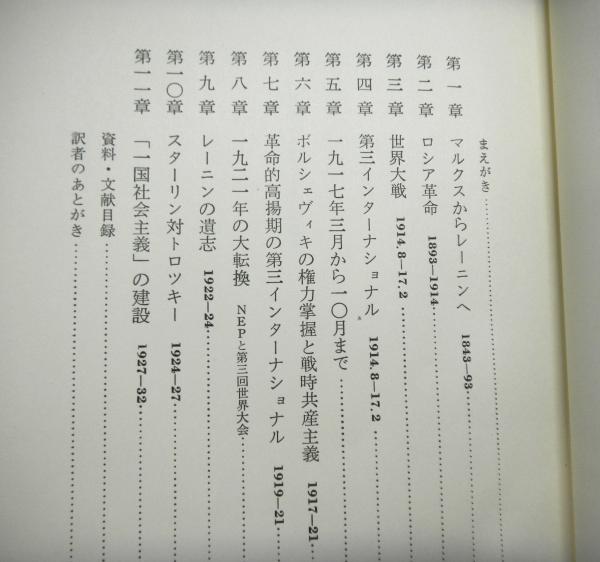 まえがき
第一章 マルクスからレーニンへ 1843—93
第二章 ロシア革命 1893—1914
第三章 世界大戦 1914.8—17.2
第四章 第三インターナショナル 1914.8—17.2
第五章 一九一七年三月から一〇月まで
第六章 ボルシェヴィキの権力掌握と戦時共産主義 1917—21
第七章 革命的高揚期の第三インターナショナル 1919—21
第八章 一九二一年の大転換 NEPと第三回世界大会
第九章 レーニンの遺志 1922—24
第一〇章 スターリン対トロツキー 1924—27
第一一章 「一国社会主義」の建設 1927—32
資料・文献目録
訳者のあとがき